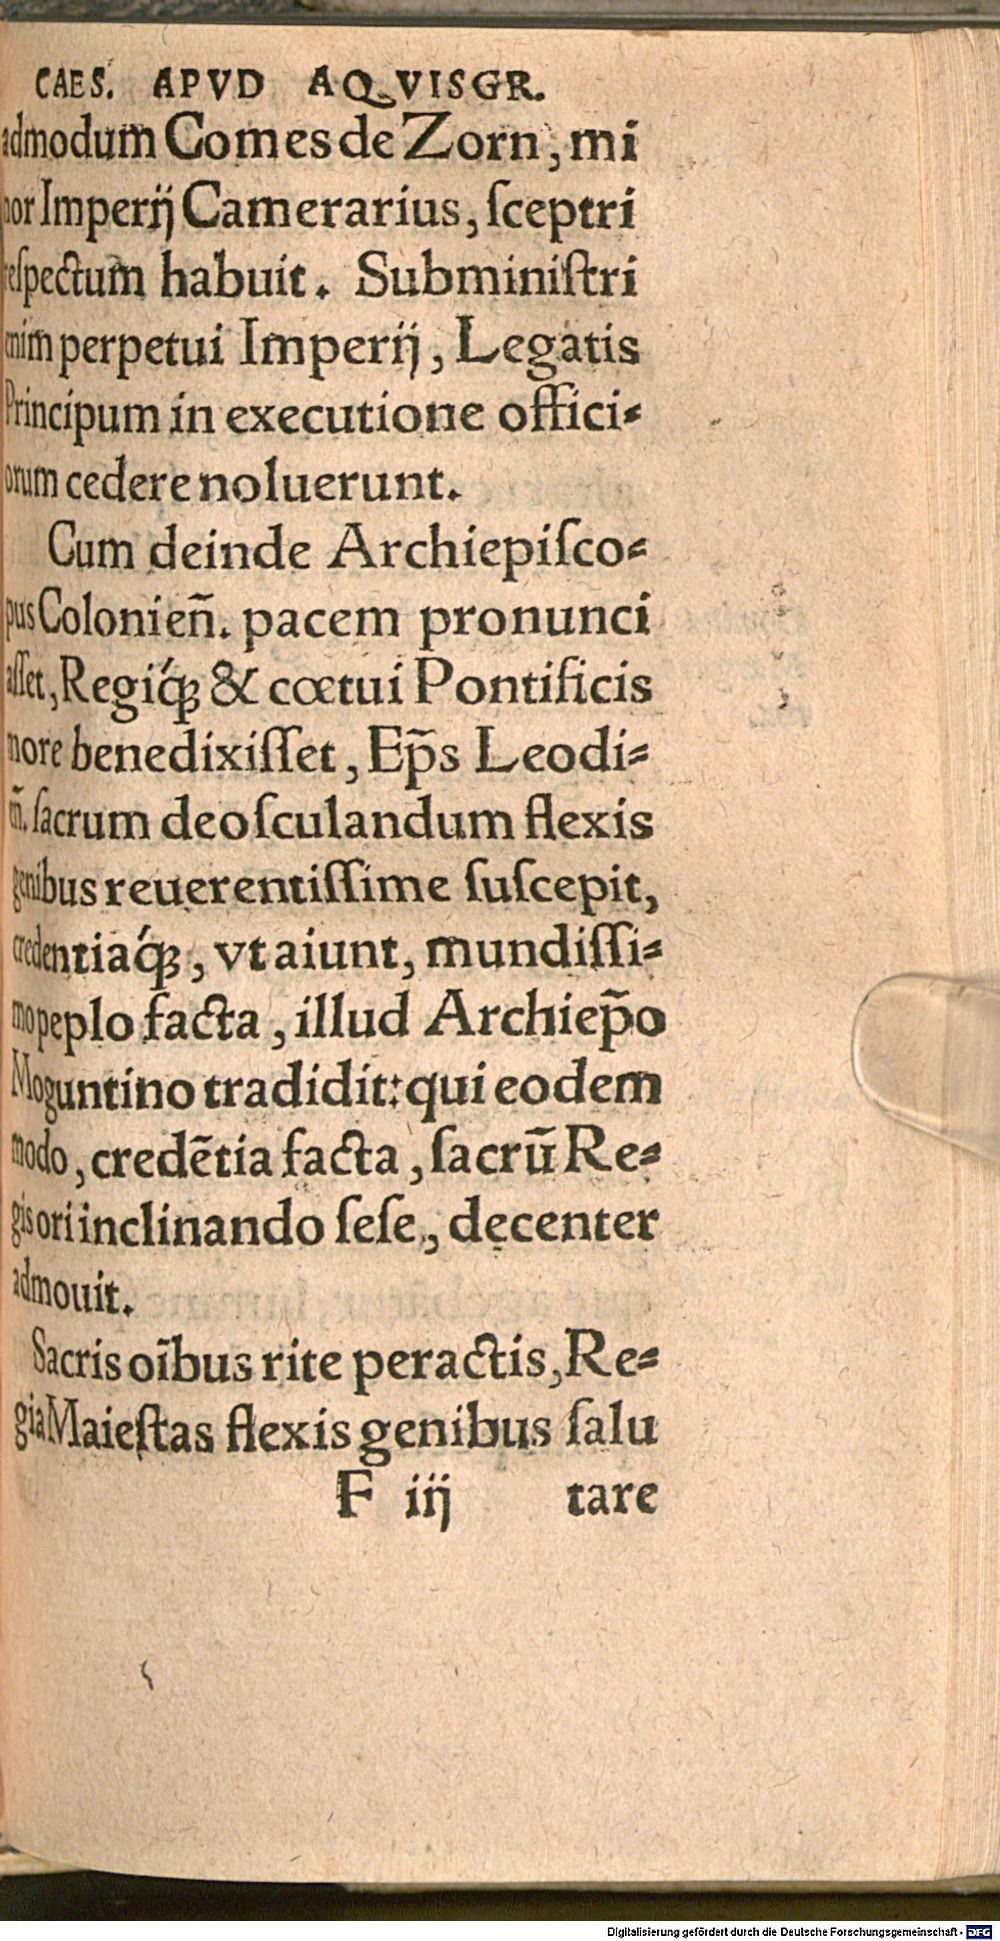 CAES. APVD AQVISGR.
admodum Comes de Zorn, mi
nor Imperij Camerarius, ſceptri
reſpectum habuit. Subminiſtri
enim perpetui Imperij, Legatis
Principum in executione offici⸗
orum cedere noluerunt.
Cum deinde Archiepiſco⸗
pus Colonień. pacem pronunci
aſſet, Regiq́ꝫ & cœtui Pontificis
more benedixiſſet, Ep̃s Leodi⸗
eñ. ſacrum deoſculandum flexis
genibus reuerentiſſime ſuſcepit,
credentiaq́ꝫ, vt aiunt, mundiſſi⸗
mo peplo facta, illud Archiep̃o
Moguntino tradidit: qui eodem
modo, credẽtia facta, ſacrũ Re⸗
gis ori inclinando ſeſe, decenter
admouit.
Sacris oĩbus rite peractis, Re⸗
gia Maieſtas flexis genibus ſalu
F iij tare
Digitalisierung gefördert durch die Deutsche Forschungsgemeinschaft - DFG